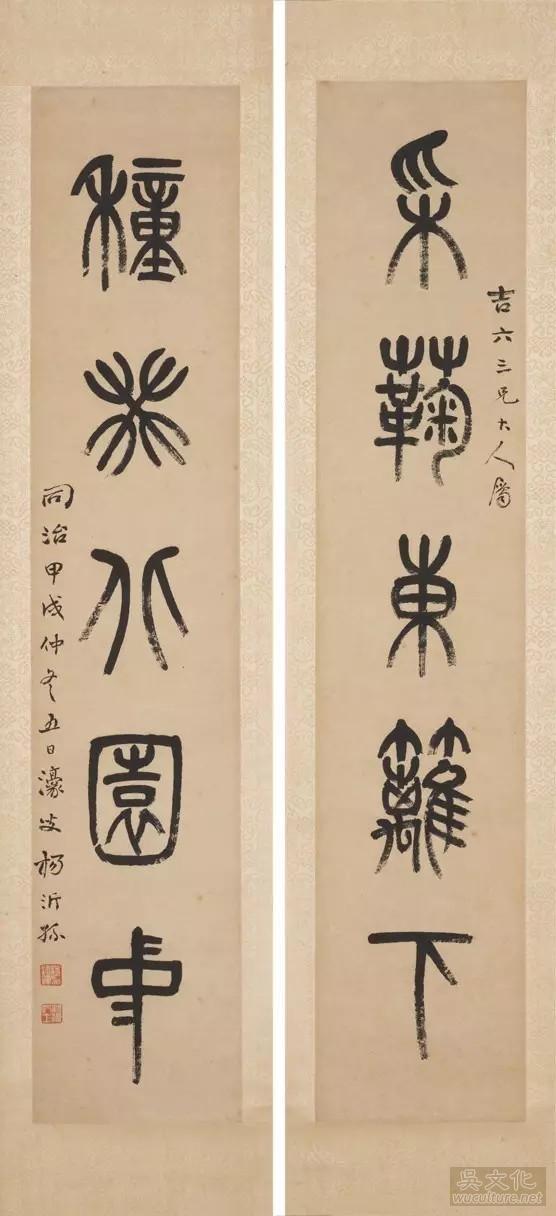 采鞠東籬下
吉六三兄大人屬
穜葵北園中
同治甲戌仲冬五日濠叟楊沂孫
吳文化
www.wuculture.net